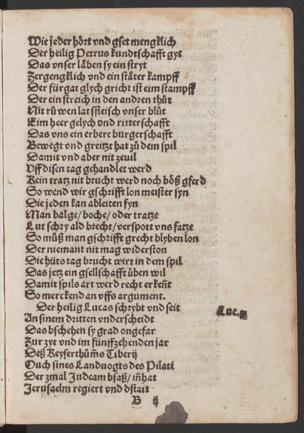 Wie jeder hört vnd gset mengklich
Der heilig Petrus kundtschafft gyt
Das vnser läben sy ein stryt
Zergengklich vnd ein stäter kampff
Der für gat glych gricht ist eim stampff
Der ein streich in den andren thůt
Nit růwen lat fleisch vnser blůt
Eim heer gelych vnd ritterschafft
Das vns ein erbere burgerschafft
Bewegt vnd greitzt hat zů dem spil
Damit vnd aber nit zeuil
Vff disen tag gehandlet werd
Kein tratz nit brucht werd noch böß gferd
So wend wir gschrifft lon meister syn
Die jeden kan ableiten fyn
Man balge/ boche/ oder tratze
Lut schry ald brecht/ verspott vns fatze
So můß man gschrifft grecht blyben lon
Der niemant nit mag widerston
Die hüts tag brucht wirt in dem spil
Das jetz ein gsellschafft üben wil
Damit spils art werd recht erkeñt
So merckend an vffs argument.
Der heilig Lucas schrybt vnd seit
In sinem dritten vnderscheidt
Das bschehen sy grad ongefar
Zur zyt vnd im fünffzehenden jar
Deß Keyserthům̃s Tiberij
Ouch sines Landuogts des Pilati
Der zmal Judeam bsaß/ iñhat
Jerusalem regiert vnd bstatt
Luc. 3
B ij